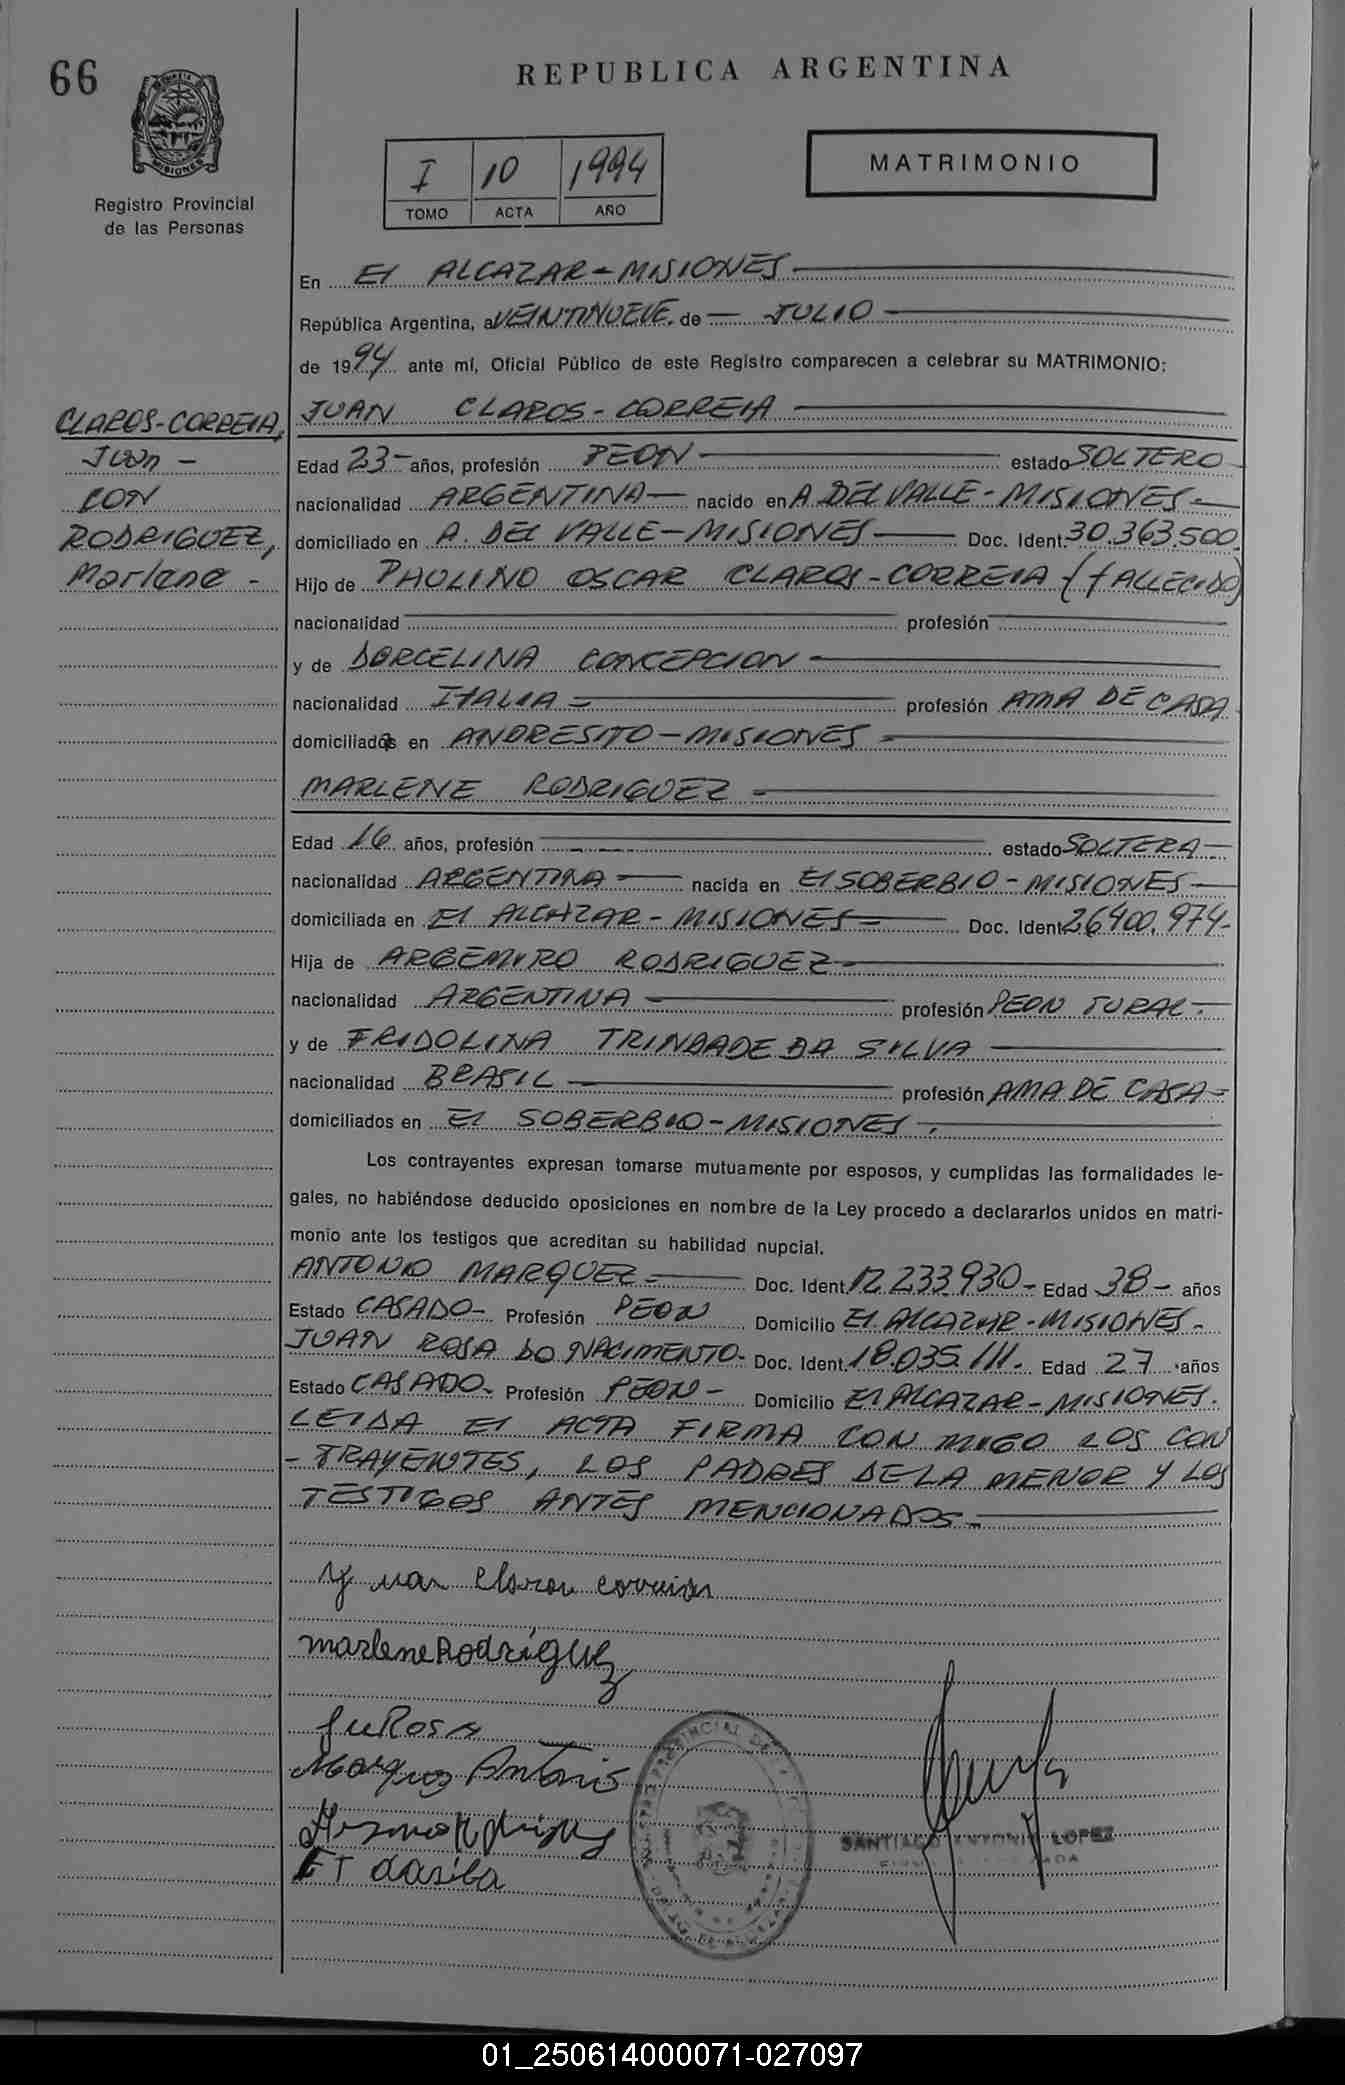 66
REPUBLICA ARGENTINA
MISIONES
Registro Provincial
de las Personas
I 10 1994
TOMO ACTA AÑO
MATRIMONIO
En El ALCAZAR-MISIONES
República Argentina, a VEINTINUEVE de JULIO
de 1994 ante mí, Oficial Público de este Registro comparecen a celebrar su MATRIMONIO:
CLAROS-CORREIA,
Juan -
CON
RODRIGUEZ,
Marlene -
JUAN CLAROS-CORREIA
Edad 23- años, profesión PEON estado SOLTERO
nacionalidad ARGENTINA- nacido en A. DEL VALLE-MISIONES-
domiciliado en A. DEL VALLE-MISIONES Doc. Ident. 30.363.500.
Hijo de PAULINO OSCAR CLAROS-CORREIA (fALLECIDO)
nacionalidad profesión
y de DORCELINA CONCEPCION
nacionalidad ITALIA profesión AMA DE CASA
domiciliados en ANDRESITO-MISIONES
MARLENE RODRIGUEZ
Edad 16 años, profesión estado SOLTERA-
nacionalidad ARGENTINA nacida en El SOBERBIO-MISIONES
domiciliada en El ALCAZAR-MISIONES- Doc. Ident 26400.974-
Hija de ARGEMIRO RODRIGUEZ
nacionalidad ARGENTINA profesión PEON TURAL-
y de FRIDOLINA TRINDADE DA SILVA
nacionalidad BRASIL profesión AMA DE CASA-
domiciliados en El SOBERBIO-MISIONES.
Los contrayentes expresan tomarse mutuamente por esposos, y cumplidas las formalidades le-
gales, no habiéndose deducido oposiciones en nombre de la Ley procedo a declararlos unidos en matri-
monio ante los testigos que acreditan su habilidad nupcial.
ANTONIO MARQUEZ- Doc. Ident 12.233.930- Edad 38- años
Estado CASADO- Profesión PEON Domicilio El ALCAZAR-MISIONES-
JUAN ROSA DO NACIMENTO- Doc. Ident. 18.035.111. Edad 27 años
Estado CASADO- Profesión PEON- Domicilio El ALCAZAR-MISIONES.
LEIDA El ACTA FIRMA CON MIGO LOS CON
-TRAYENTES, LOS PADRES DE LA MENOR Y LOS
TESTIGOS ANTES MENCIONADOS-
marlene Rodriguez
Rosa
Marques Antonio
F T dasilva
SANTIAGO ANTONIO LOPEZ
01_250614000071-027097